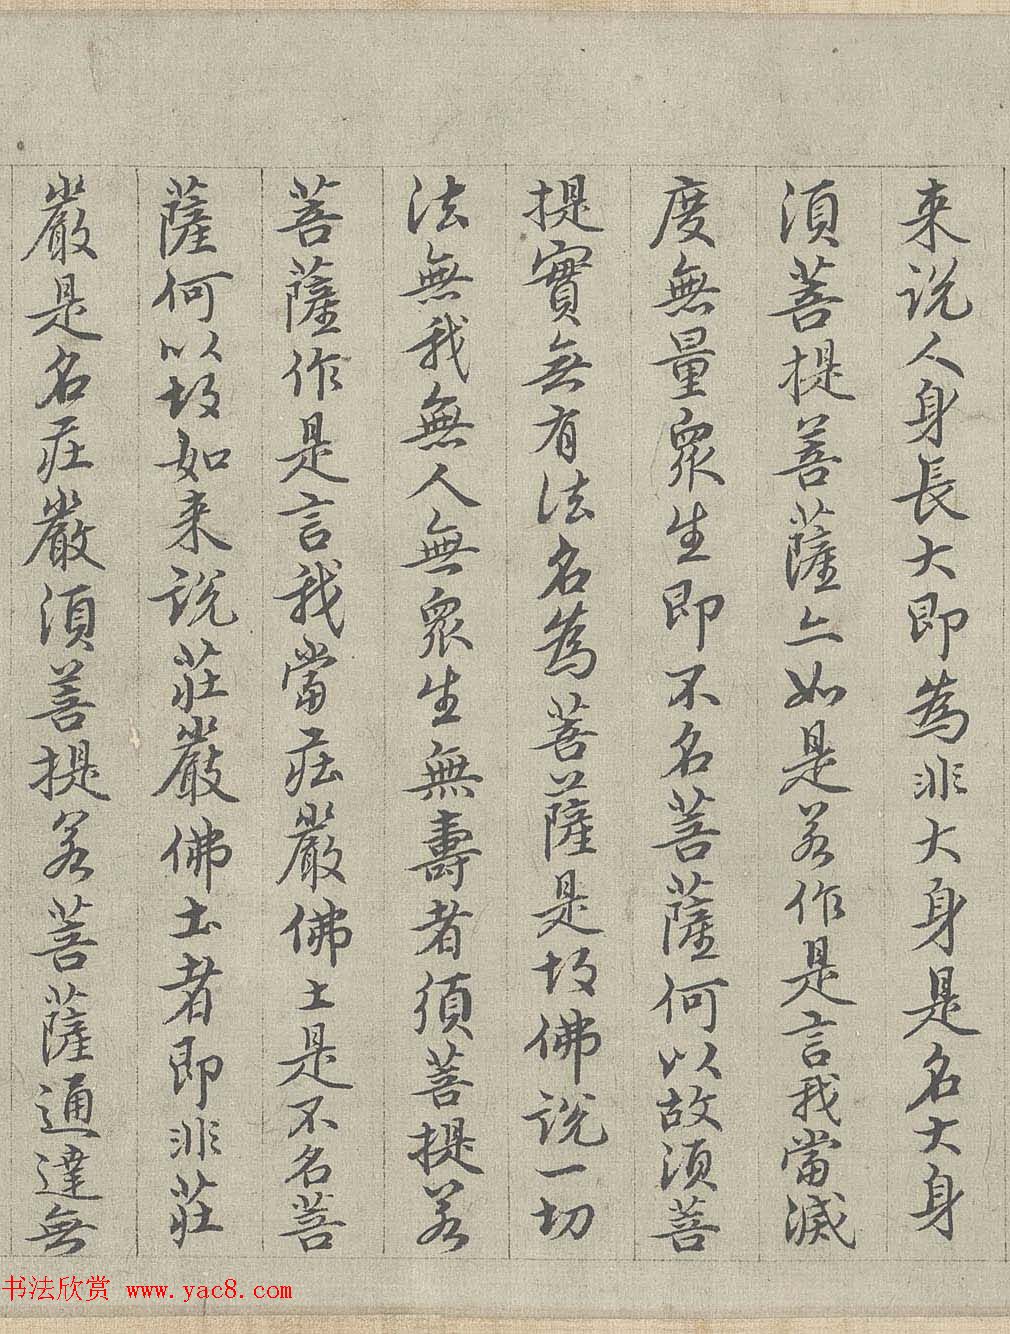 来説人身長大即為非大身是名大身
須菩提菩薩亦如是若作是言我當滅
度無量衆生即不名菩薩何以故須菩
提實無有法名為菩薩是故佛說一切
法無我無人無衆生無壽者須菩提若
菩薩作是言我當莊嚴佛土是不名菩
薩何以故如来說莊嚴佛土者即非莊
嚴是名莊嚴須菩提若菩薩通達無
书法欣赏 www.yac8.com